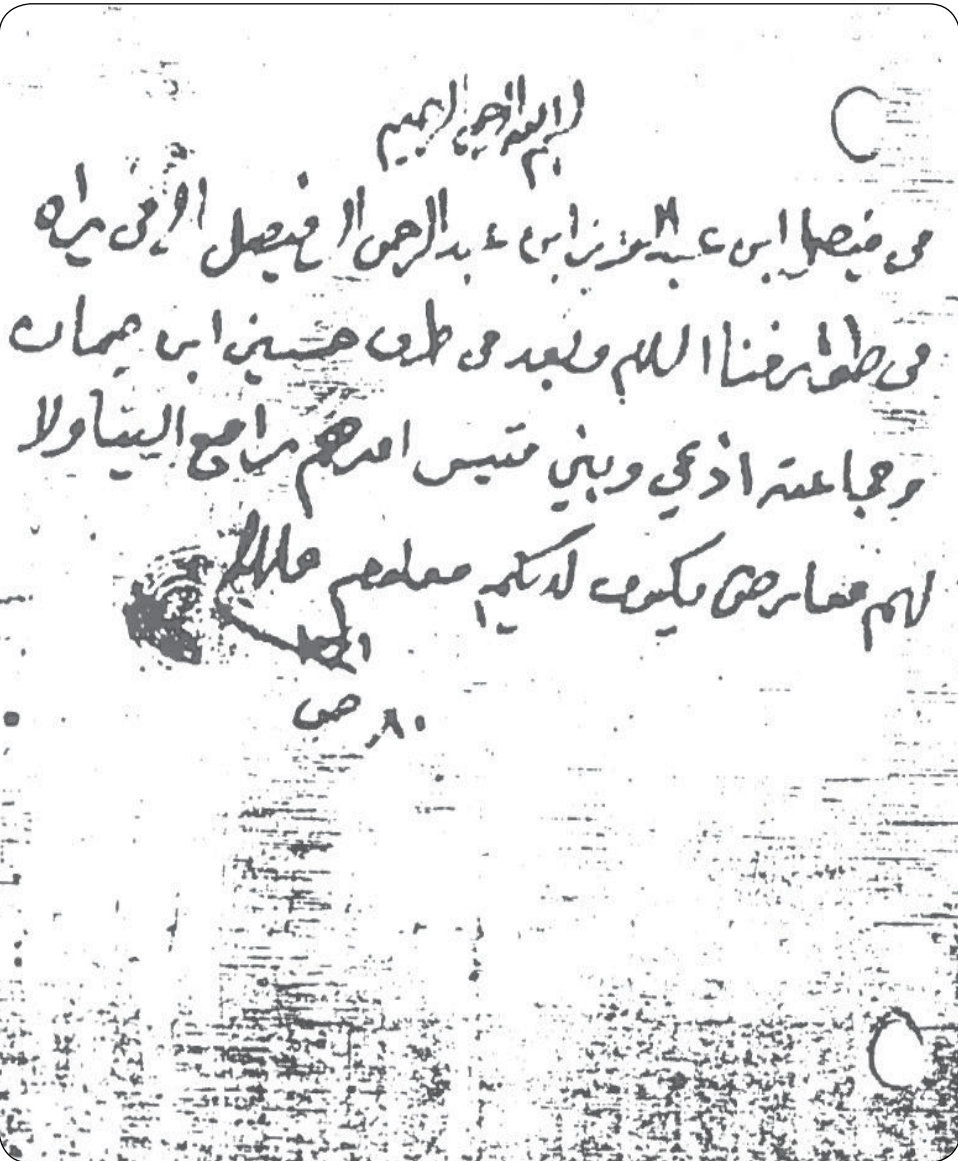 بسم الله الرحمن الرحيم
من فيصل ابن عبد العزيز ابن عبد الرحمن ال فيصل الا من يراه
من طوارفنا السلام وبعد من طرف حسين ابن
وجماعته وبني قيس امرهم راجع الينا ولا
لهم معارض يكون لديكم معلوم والسلام
ص